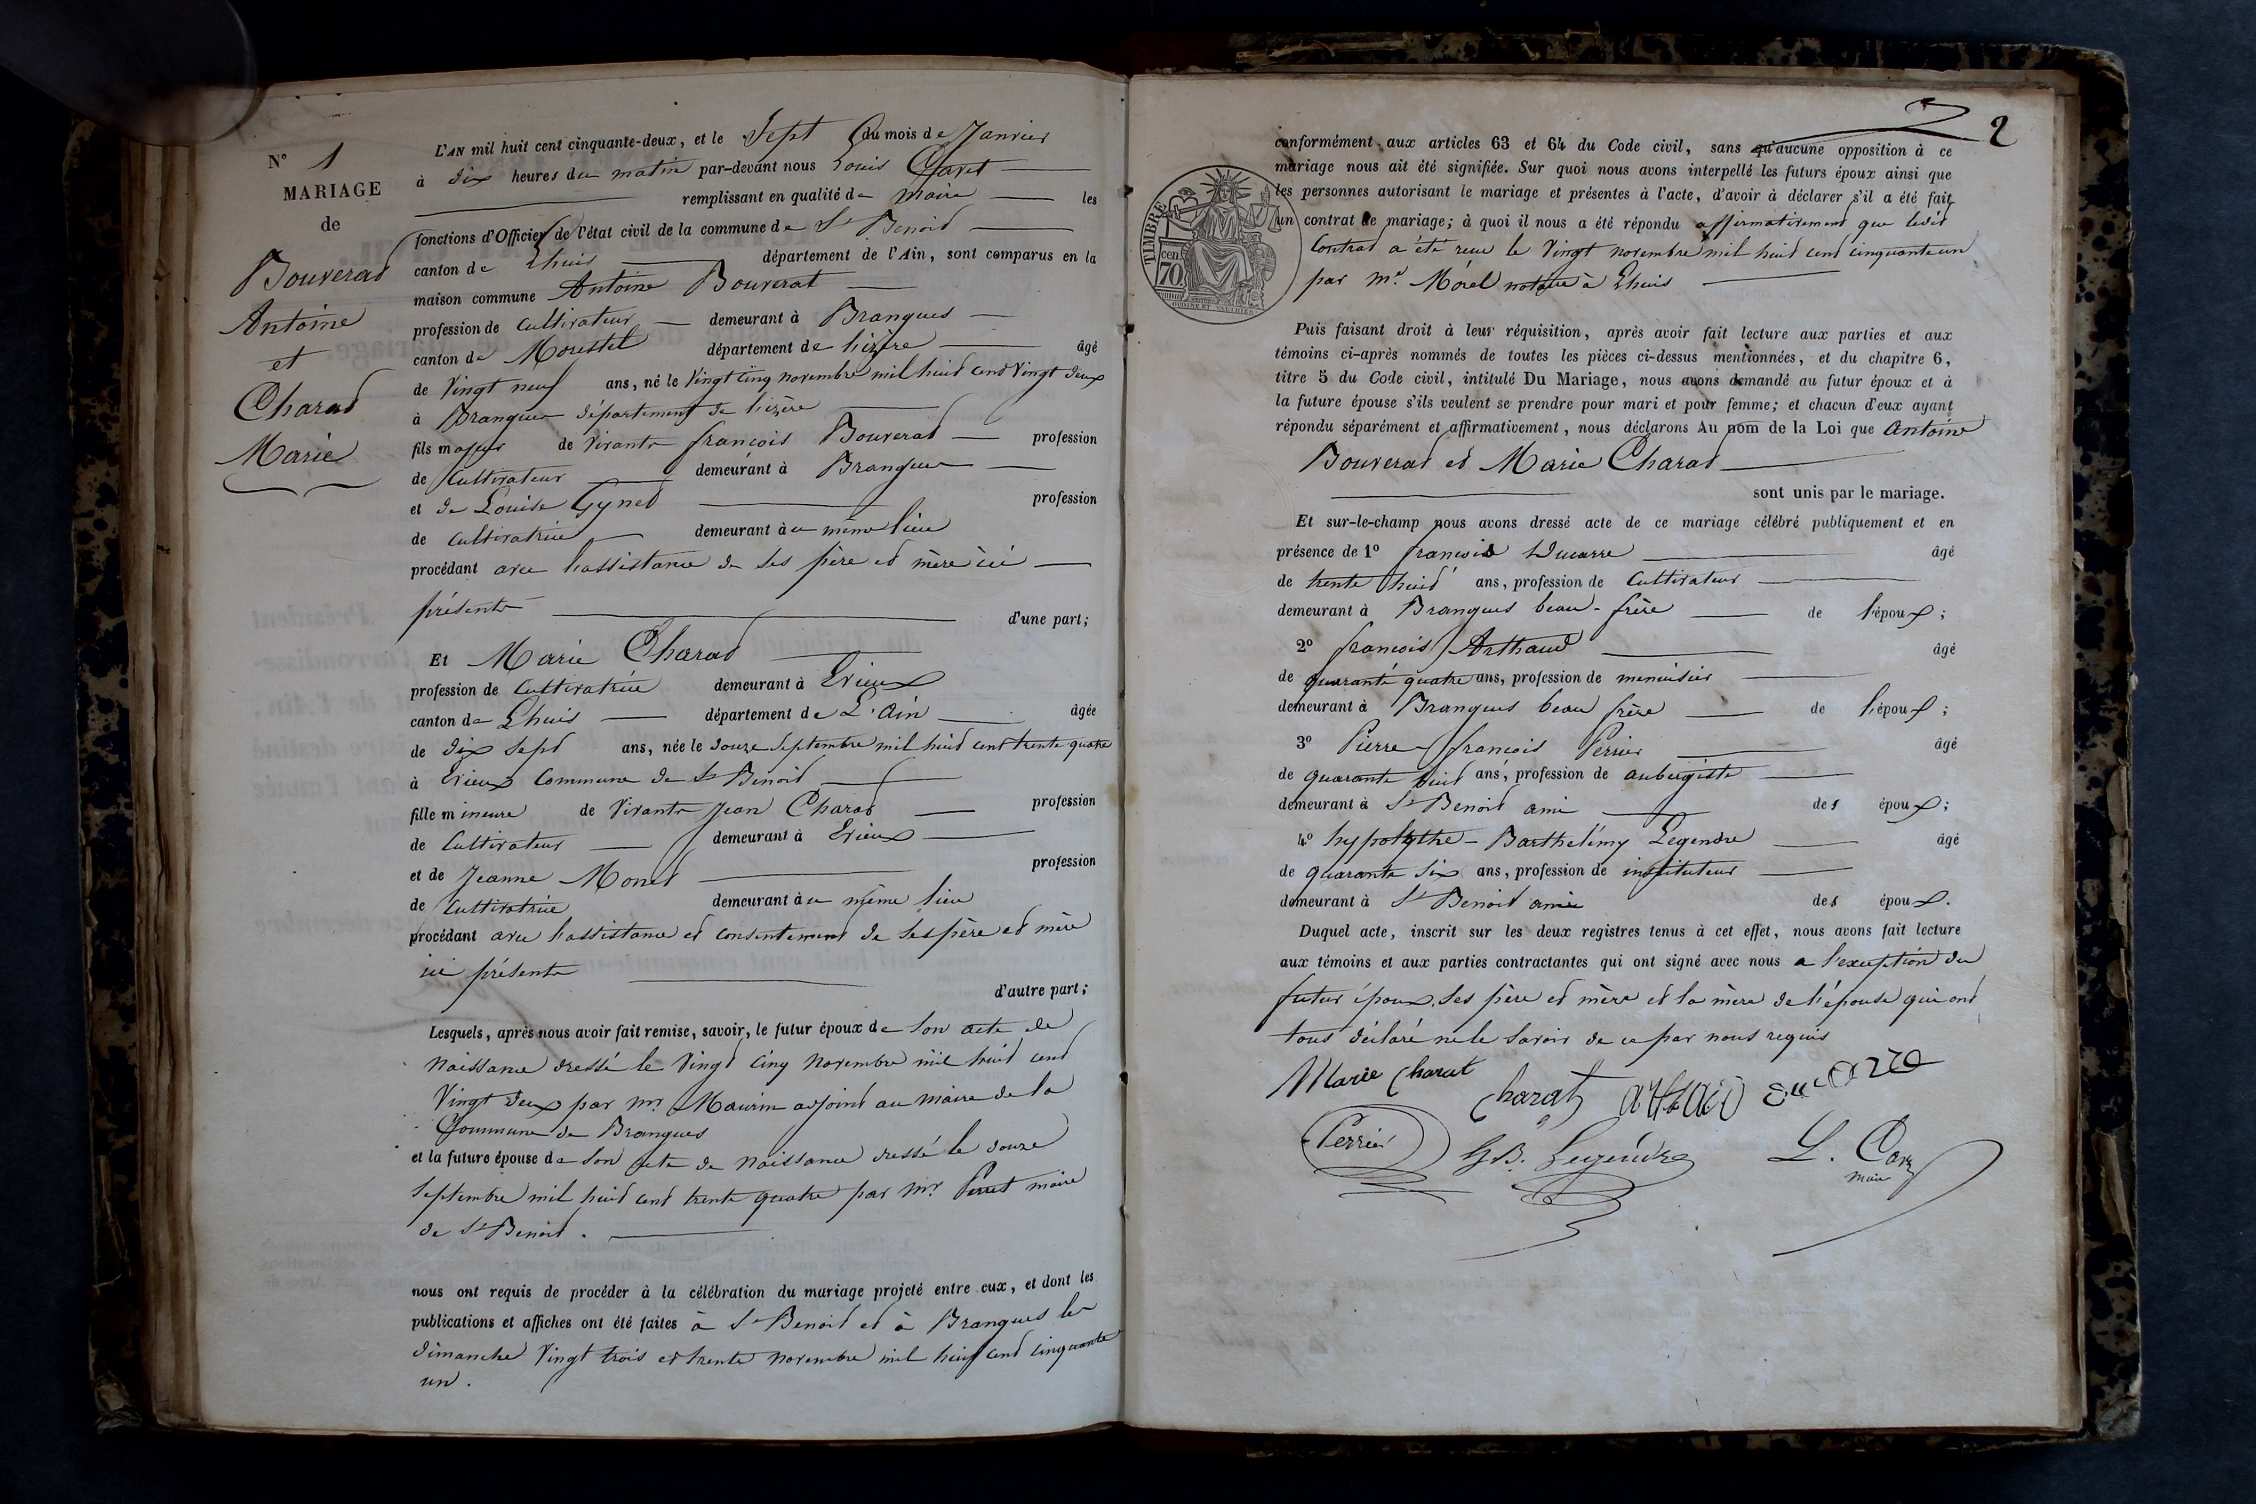 N° 1
MARIAGE
de
Bouverat
Antoine
et
Charat
Marie
L'AN mil huit cent cinquante-deux, et le Sept du mois de Janvier
à dix heures du matin par-devant nous Louis
remplissant en qualité de maire les
fonctions d'Officier de l'état civil de la commune de St Benoit
canton de Lhuis département de l'Ain, sont comparus en la
maison commune Antoine Bouverat
profession de Cultivateur demeurant à Brangues
canton de Morestel département de lizère âgé
de Vingt neuf ans, né le Vingt cinq novembre mil huit cent Vingt deux
à Brangues département de lizère
fils majeur de Vivants françois Bouverat profession
de Cultivateur demeurant à Brangues
et de Louise Gynet profession
de Cultivatrice demeurant à u même lieu
procédant avec l'assistance de ses père et mère ici
présents d'une part;
Et Marie Charat
profession de Cultivatrice demeurant à Evieux
canton de Lhuis département de L'Ain âgée
de dix sept ans, née le douze Septembre mil huit cent trente quatre
à Evieux Commune de St Benoit
fille mineure de Vivants Jean Charat profession
de Cultivateur demeurant à Evieux
et de Jeanne Monet profession
de Cultivatrice demeurant à u même lieu
procédant avec l'assistance et consentement de ses père et mère
ici présents
d'autre part;
Lesquels, après nous avoir fait remise, savoir, le futur époux de son acte de
Naissance dressé le Vingt cinq Novembre mil huit cent
Vingt deux par mr Maurin adjoint au maire de la
Commune de Brangues
et la future épouse de son acte de Naissance dressé le douze
Septembre mil huit cent trente quatre par mr Perret maire
de St Benoit.
nous ont requis de procéder à la célébration du mariage projeté entre eux, et dont les
publications et affiches ont été faites à St Benoit et à Brangues les
dimanche Vingt trois et trente novembre mil huit cent cinquante
un.
2
TIMBRE
70 cen
conformément aux articles 63 et 64 du Code civil, sans qu'aucune opposition à ce
mariage nous ait été signifiée. Sur quoi nous avons interpellé les futurs époux ainsi que
les personnes autorisant le mariage et présentes à l'acte, d'avoir à déclarer s'il a été fait
un contrat de mariage; à quoi il nous a été répondu affirmativement que ledit
Contrat a été reçu le Vingt novembre mil huit cent cinquante un
par me Morel notaire à Lhuis
Puis faisant droit à leur réquisition, après avoir fait lecture aux parties et aux
témoins ci-après nommés de toutes les pièces ci-dessus mentionnées, et du chapitre 6,
titre 5 du Code civil, intitulé Du Mariage, nous avons demandé au futur époux et à
la future épouse s'ils veulent se prendre pour mari et pour femme; et chacun d'eux ayant
répondu séparément et affirmativement, nous déclarons Au nom de la Loi que Antoine
Bouverat et Marie Charat
sont unis par le mariage.
Et sur-le-champ nous avons dressé acte de ce mariage célébré publiquement et en
présence de 1° françois Ducarre âgé
de trente huit ans, profession de Cultivateur
demeurant à Brangues beau-frère de l'époux;
2° françois Arthaud âgé
de quarante quatre ans, profession de menuisier
demeurant à Brangues beau frère de l'époux;
3° Pierre françois Perrier âgé
de quarante huit ans, profession de aubergiste
demeurant à St Benoit ami des époux;
4° hypolythe-Barthélémy Legendre âgé
de quarante six ans, profession de instituteur
demeurant à St Benoit ami des époux.
Duquel acte, inscrit sur les deux registres tenus à cet effet, nous avons fait lecture
aux témoins et aux parties contractantes qui ont signé avec nous a l'exeuption du
futur époux, ses père et mère et la mère de l'épouse qui ont
tous déclaré ne le savoir de ce par nous requis
Marie Charat
Charat
Perrier
Legendre
L.
maire